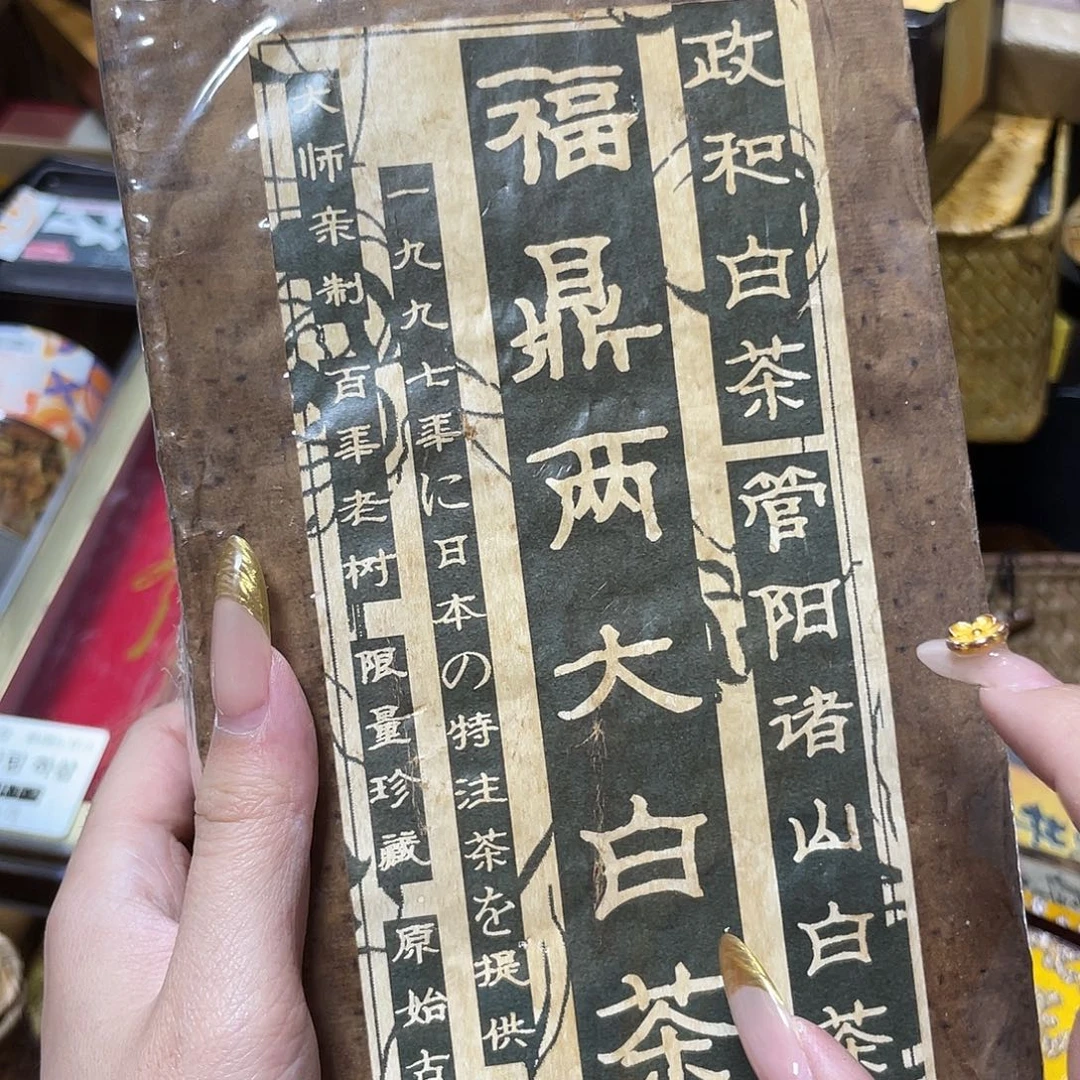 政和白茶 管阳诸山白茶
福鼎两大白茶
一九九七年に日本の特注茶を提供
大师亲制百年老树 限量珍藏 原始古